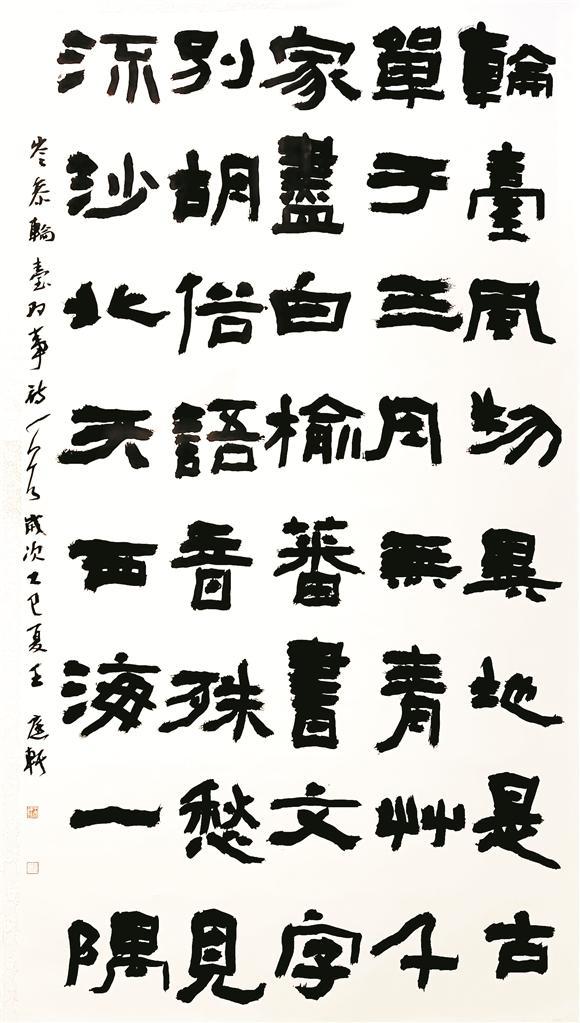 輪臺風物異地是古
單于三月無青艸千
家盡白榆蕃書文字
別胡俗語音殊愁見
流沙北天西海一隅
岑參輪臺即事詩一首歲次乙巳夏王庭軒